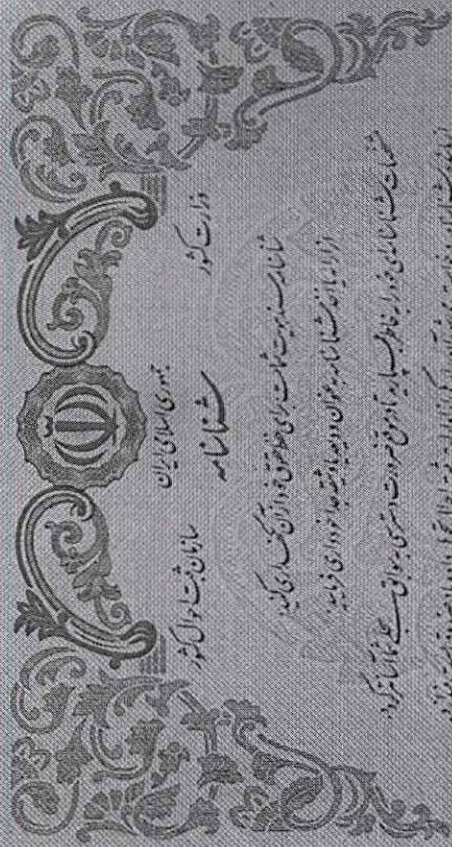 جمهوری اسلامی ایران
وزارت کشور
سازمان ثبت احوال کشور
شناسنامه
شناسنامه سند هویت شماست برای حفظ حقوق خود از آن نگهداری کنید
از ارایه یا نزد شناسنامه به عنوان ودیعه یا وثیقه جدا خودداری فرمایید
مشخصات شناسنامه‌ای خود را به خاطر بسپارید تا در موقع ضرورت دسترسی به سوابق سجلی شما آسانتر گردد